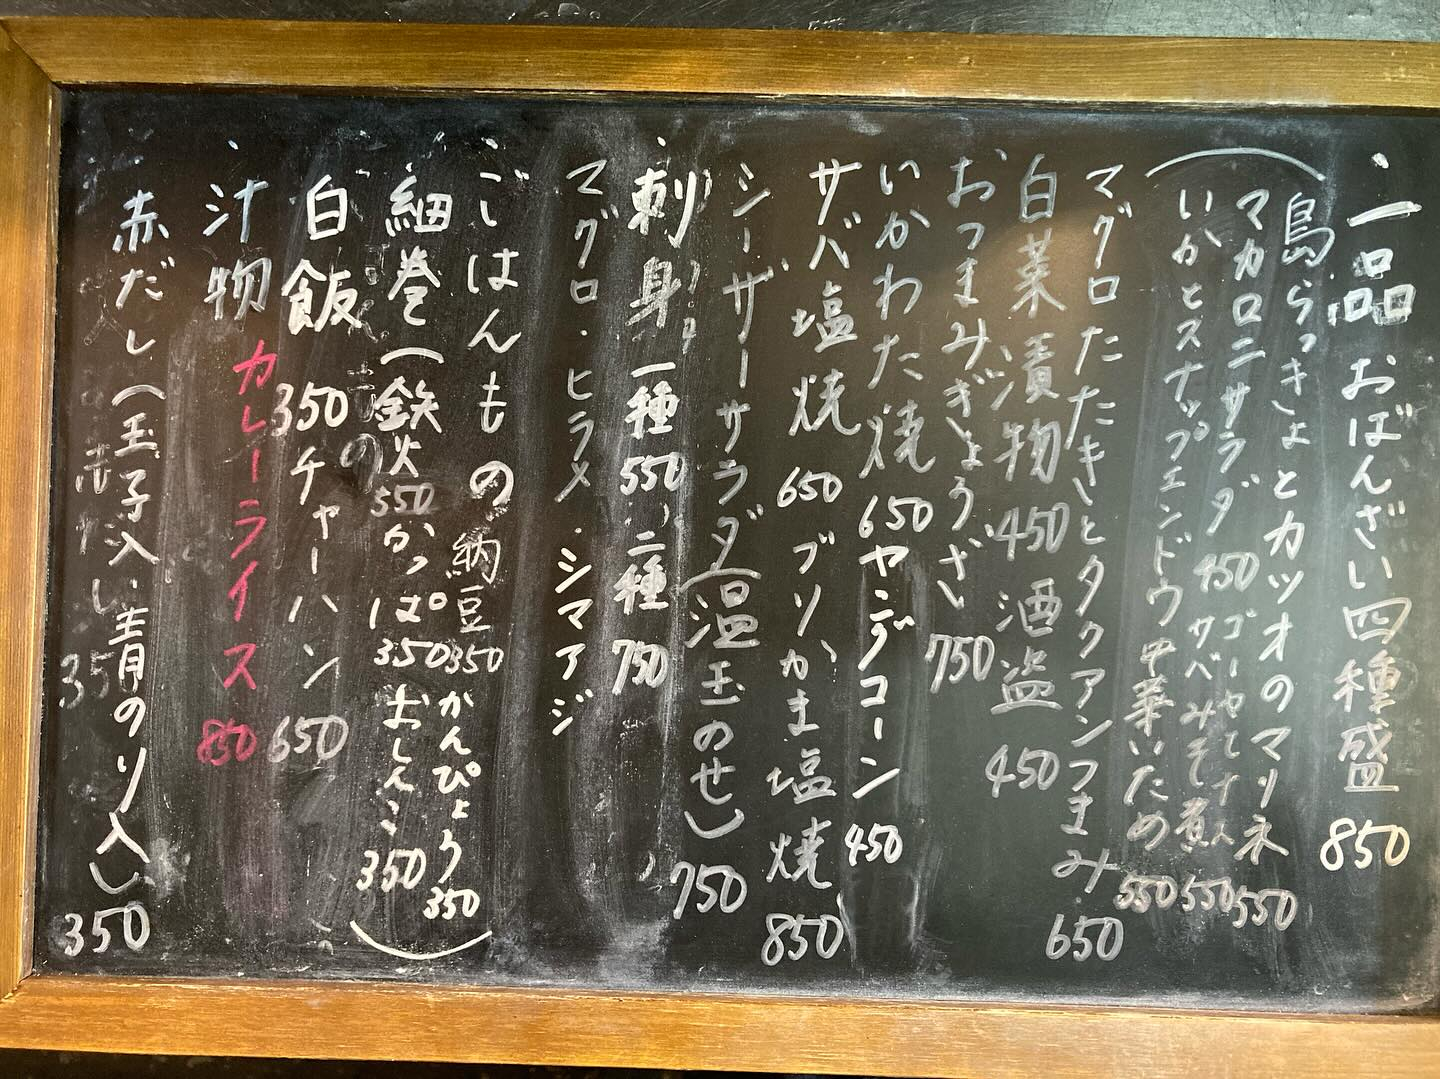 ・一品 おばんざい四種盛 850
(島らっきょとカツオのマリネ 550
マカロニサラダ 450 ゴーヤとナ
サバみそ煮 550
いかとスナップエンドウ中菜いため 550
マグロたたきとタクアンつまみ 650
白菜漬物 450 酒盗 450
おつまみぎょうざ 750
いかわた焼 650 ヤングコーン 450
サバ塩焼 650 ブリかま塩焼 850
シーザーサラダ(温玉のせ) 750
・刺身 一種 550 二種 750
マグロ・ヒラメ・シマアジ
・ごはんもの
納豆 350 かんぴょう 350
細巻(鉄火 550 かっぱ 350 おしんこ 350)
白飯 350 チャーハン 650
カレーライス 850
・汁物
赤だし(玉子入い青のり入) 350